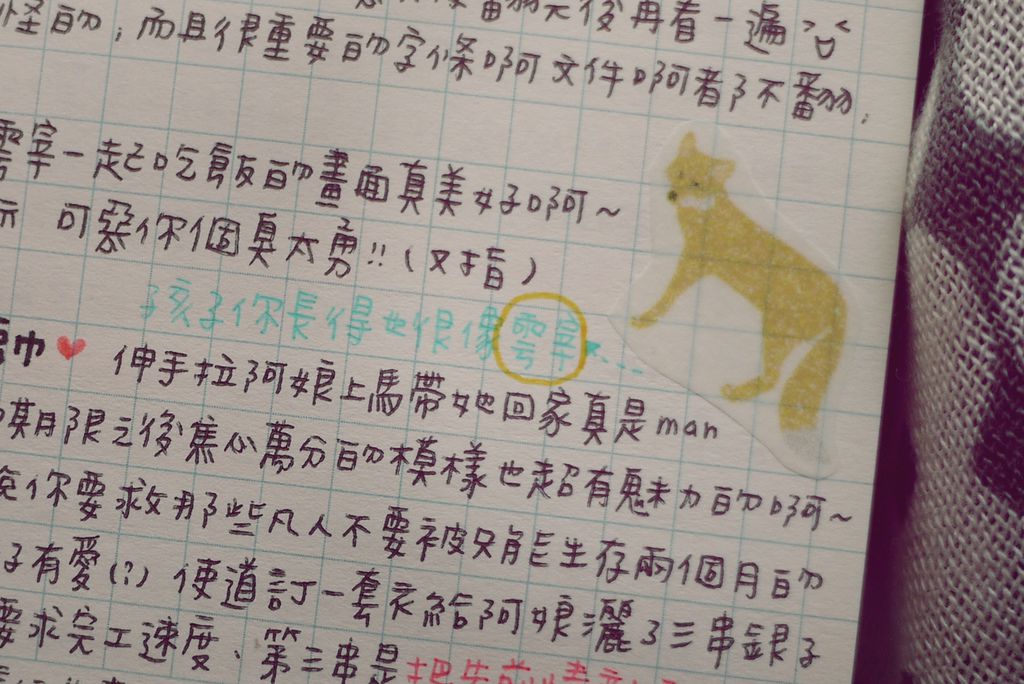 翻完後再看一遍
怪的，而且很重要的字條啊文件啊都不翻，
雲宰一起吃飯的畫面真美好啊~
可惡你個臭太勇!!(又指)
孩子你長得好很像雲宰...
巾♥ 伸手拉阿娘上馬帶她回家真是man
期限之後焦心萬分的模樣也超有魅力的啊~
你要救那些凡人不要被只能生存兩個月的
子有愛(?) 使道訂一套衣給阿娘灑了三串銀子
要求完工速度、第三串是